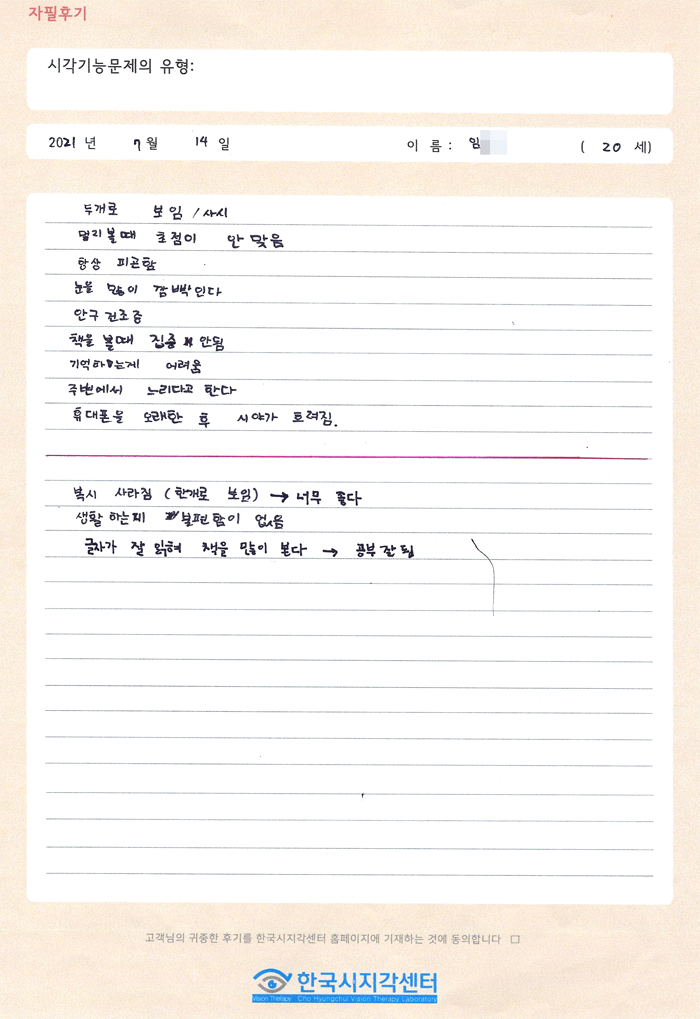 자필후기
시각기능문제의 유형:
2021 년 7 월 14 일 이 름 : 임 ( 20 세)
두개로 보임 / 사시
멀리볼때 초점이 안 맞음
항상 피곤함
눈을 많이 깜빡인다
안구 건조증
책을 볼때 집중 안됨
기억하는게 어려움
주변에서 느리다고 한다
휴대폰을 오래한 후 시야가 흐려짐.
복시 사라짐 (한개로 보임) → 너무 좋다
생활하는데 불편함이 없음
글자가 잘 읽혀 책을 많이 본다 → 공부 잘됨
고객님의 귀중한 후기를 한국시지각센터 홈페이지에 기재하는 것에 동의합니다 □
한국시지각센터
Vision Therapy Cho Hyungchul Vision Therapy Laboratory